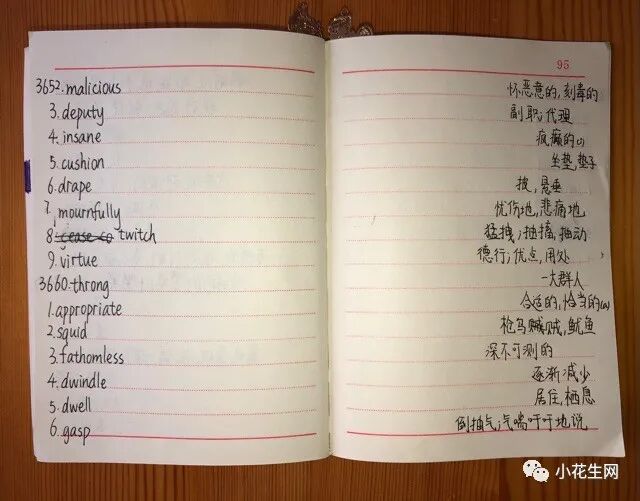 3652.malicious
3.deputy
4.insane
5.cushion
6.drape
7.mournfully
8.twitch
9.virtue
3660.throng
1.appropriate
2.squid
3.fathomless
4.dwindle
5.dwell
6.gasp
95
怀恶意的,刻毒的
副职;代理
疯癫的
坐垫,垫子
披,悬垂
忧伤地,悲痛地
猛拽;抽搐,抽动
德行;优点,用处
一大群人
合适的,恰当的(a)
枪乌贼,鱿鱼
深不可测的
逐渐减少
居住,栖息
倒抽气;气喘吁吁地说
小花生网